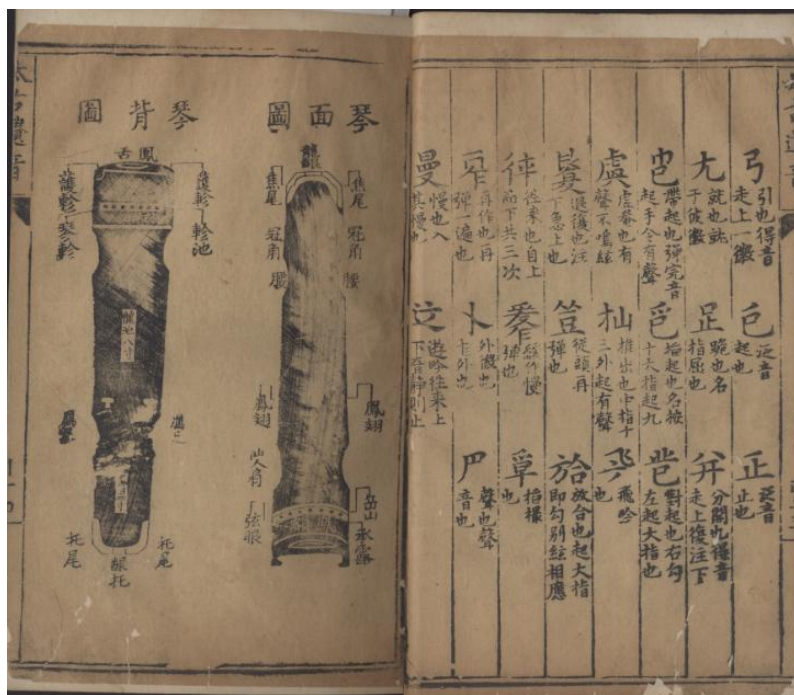 弓 引也得音走上一徽
色 泛音起也
正 泛音止也
尢 就也就于彼徽
足 跪也名指屈也
幷 分開也得音走上復注下
帶起也彈完音起手令有聲
搯起也名按十大指起九
對起也右勾左起大指也
虛 虛罨也有聲不鳴絃
推出也中指十三外起有聲
飛吟也
退復也注下急上也
從頭再彈也
放合也起大指即勾別絃相應
往來也自上而下共三次
緩作慢彈也
指樣也
再作也再彈一遍也
卜 外徽也卞外也
聲也聲音也
曼 慢也入其慢也
遊吟往來上下音靜則止
琴面圖
龍齦
焦尾
焦尾
冠角
冠角
腰
腰
鳳翅
鳳翅
仙人肩
岳山
弦眼
承露
琴背圖
鳳舌
護軫
護軫
軫池
琴軫
龍池八寸
托尾
托尾
齦托
太古遺音